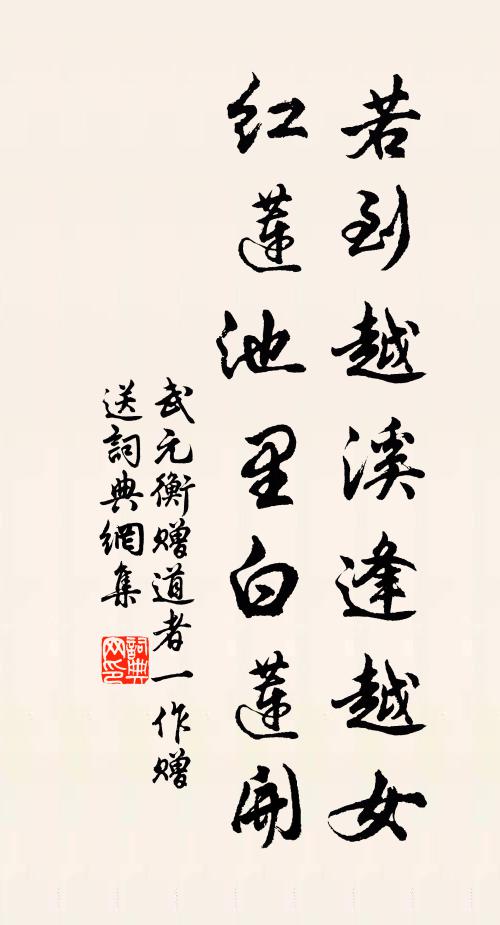 若到越溪逢越女
红蓮池里白蓮開
武元衡赠道者一作赠
送詞典網集
詞典网印